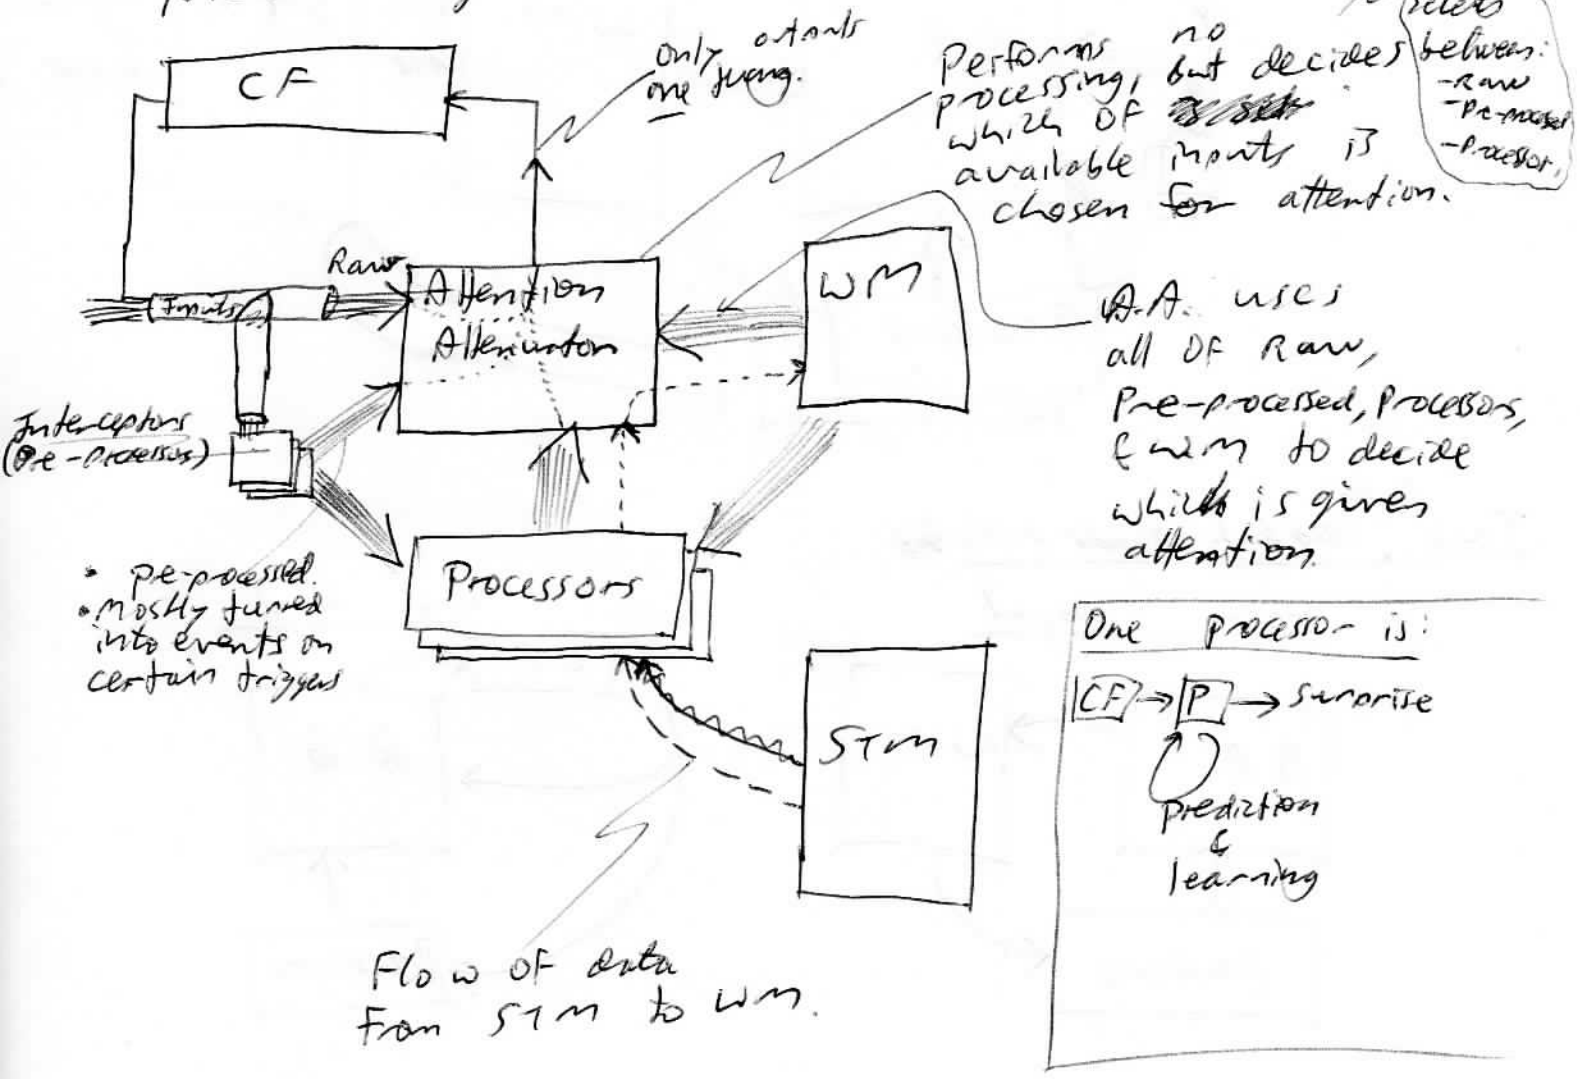 CF
only outputs
one thing.
Performs no
processing, but decides
which of
available inputs is
chosen for attention.
between:
-Raw
-Pre-processed
-Processor.
Inputs
Raw
Attention
Attenuator
WM
A.A. uses
all of Raw,
Pre-processed, Processors,
& WM to decide
which is given
attention.
Interceptors
(Pre-processors)
• pre-processed.
• Mostly turned
into events on
certain triggers
Processors
STM
One processor is:
CF → P → surprise
prediction
&
learning
Flow of data
from STM to WM.